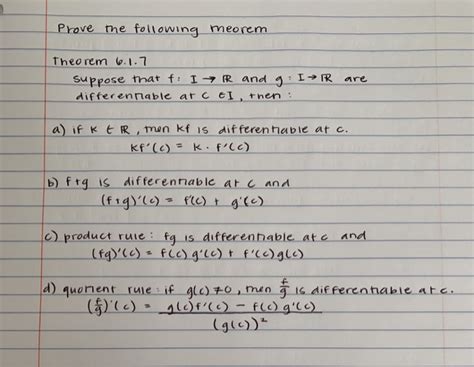 Prove the following meorem
Theorem 6.1.7
suppose that f: I → ℝ and g: I → ℝ are
differentiable at c ∈ I, then:
a) if k ∈ ℝ, then kf is differentiable at c.
kf'(c) = k · f'(c)
b) f+g is differentiable at c and
(f+g)'(c) = f'(c) + g'(c)
c) product rule: fg is differentiable at c and
(fg)'(c) = f(c) g'(c) + f'(c) g(c)
d) quotient rule: if g(c) ≠ 0, then f/g is differentiable at c.
(f/g)'(c) = g(c)f'(c) − f(c) g'(c)
(g(c))²